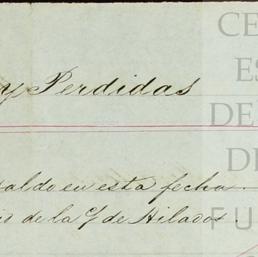 y Perdidas
saldo en esta fecha.
de la c/ de Hilados.
CE
ES
DE
D
FU